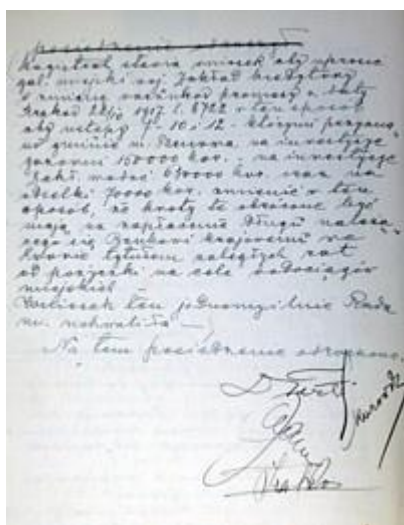 posiedzenie
Magistrat stawia wniosek aby uprosić
gal. miejski woj. Zakład kredytowy
o zmianę warunków promesy z daty
Kraków 22/10 1917 l. 6722 w ten sposób
aby ustępy 7-10 i 12. którymi przyzna
no gminie m. Rzeszowa na inwestycje
gazowni 150000 kor. na inwestycje
zakł. wodoc. 630000 kor. oraz na
70000 kor. zmienić w ten
sposób, że kwoty te obrócone być
mają na zapłacenie długu należą
cego się Bankowi krajowemu we
Lwowie tytułem zaległych rat
od pożyczki na cele wodociągów
miejskich
Wniosek ten jednomyślnie Rada
m. uchwaliła —
Na tem posiedzenie